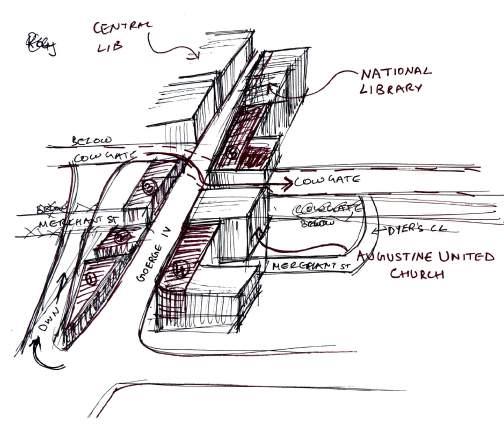 CENTRAL
LIB
NATIONAL
LIBRARY
BELOW
COWGATE
COWGATE
MERCHANT ST
COWGATE
BELOW
DYER'S CL
AUGUSTINE UNITED
CHURCH
MERCHANT ST
GOERGE IV
DWN